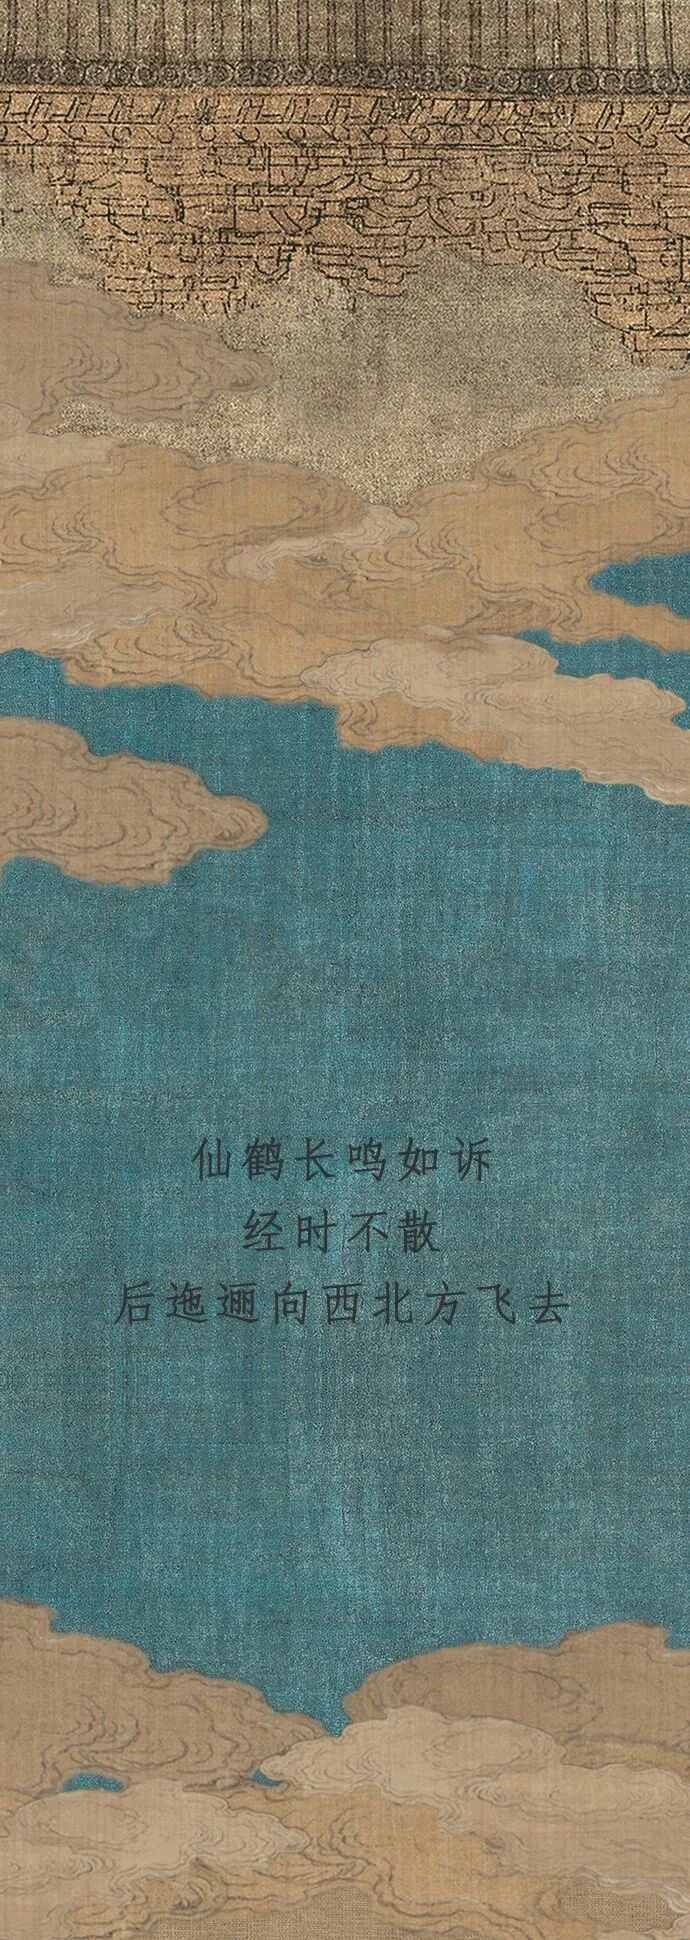 仙鹤长鸣如诉
经时不散
后迤逦向西北方飞去